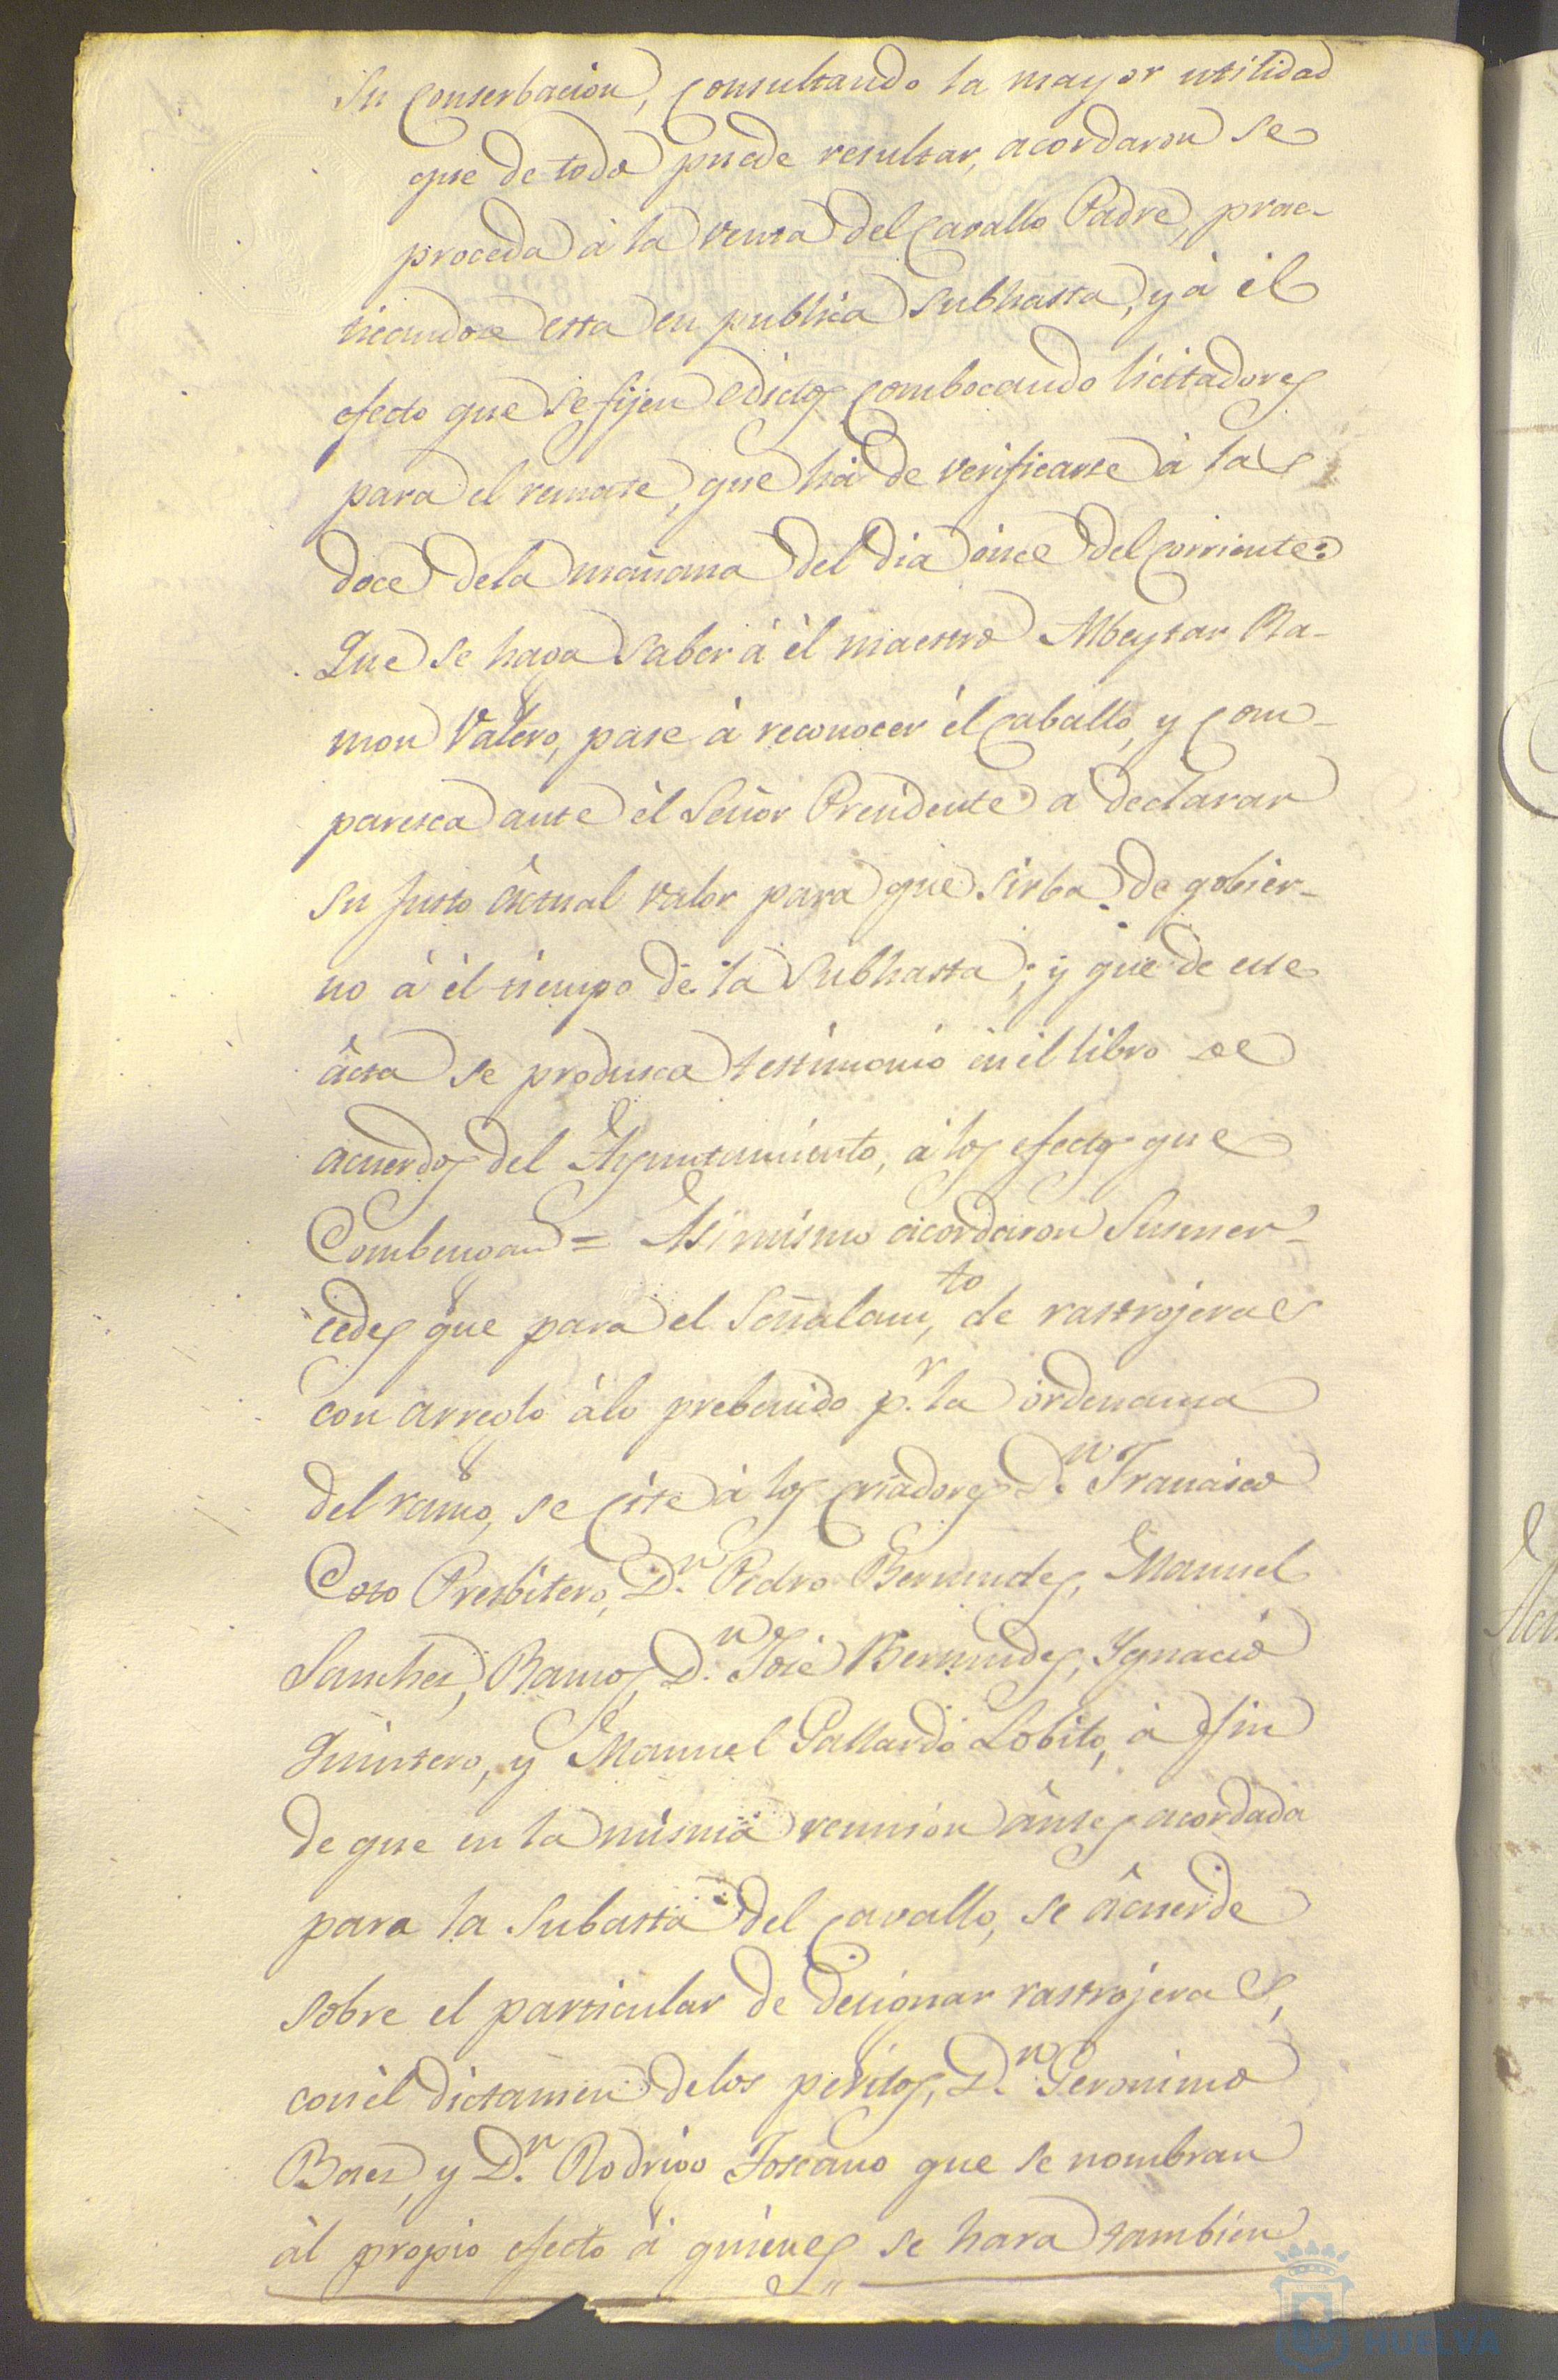 su conserbacion, consultando la mayor utilidad
que de todo puede resultar, acordaron se
proceda à la venta del cavallo Padre, prac-
ticandose esta en publica subhasta, y à èl
efecto que se fijen edictos combocando licitadores
para el remate, que há de verificarse à las
doce dela mañana del dia ònce del corriente:
Que se haga saber à èl maestro Albeytar Ra-
mon Valero, pase à reconocer èl caballo, y com-
paresca ante èl Señor Presidente à declarar
su justo âctual valor para que sirba de gobier-
no à èl tiempo de la subhasta; y que de este
âcta se produsca testimonio en èl libro de
acuerdos del Ayuntamiento, à los efectos que
Combengan = Asimismo acordaron susmer-
cedes que para el señalam,to de rastrojeras
con arreglo àlo prebenido p.r la ordenansa
del ramo, se cite à los criadores D.n Francisco
Coto Presbitero, D.n Pedro Bermudes, Manuel
Sanchez, Ramos, D.n José Bermudes, Ygnacio
Quintero, y Manuel Gallardo Lobito, à fin
de que en la misma reunion àntes acordada
para la subasta del cavallo, se âcuerde
sobre el particular de designar rastrojeras,
con èl dictamen delos peritos, D.n Geronimo
Baez, y D.n Rodrigo Toscano que se nombran
àl propio efecto à quienes se hara tambien
HUELVA